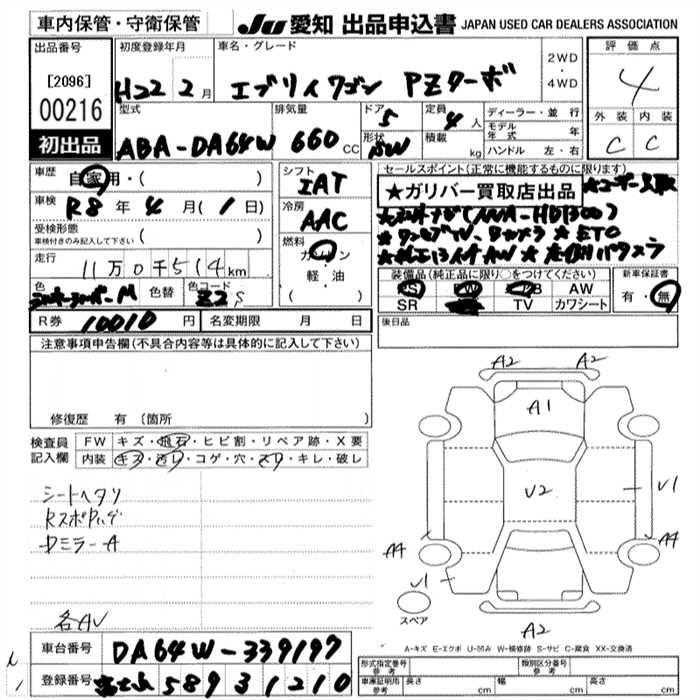 車内保管・守衛保管
JU 愛知 出品申込書 JAPAN USED CAR DEALERS ASSOCIATION
出品番号 [2096] 00216
初出品
初度登録年月 H22 2月
車名・グレード エブリイワゴン PZターボ
2WD・4WD
評価点 4
外装 C 内装 C
型式 ABA-DA64W
排気量 660 CC
ドア 5
形状 SW
定員 4人
積載 kg
ディーラー・並行
モデル年式 年
ハンドル 左・右
車歴 自家用・( )
車検 R8年4月(1日)
受検形態
車検付きのみ記入して下さい ( )
走行 11万0千514km
色 M 色替 色コード Z2S
R券 10010円 名変期限 月 日
シフト IAT
冷房 AAC
燃料 ガソリン
軽・油
( )
セールスポイント(正常に機能するものに限ります)
★ガリバー買取店出品
装備品(純正品に限り○をつけてください) 新車保証書
PS PW AB AW 有・無
SR TV カワシート
後日品
注意事項申告欄(不具合内容等は具体的に記入して下さい)
修復歴 有〔箇所
検査員記入欄
FW キズ・飛石・ヒビ割・リペア跡・X要
内装 キズ・汚レ・コゲ・穴・スリ・キレ・破レ
シートヘタリ
Dミラー A
各AV
A2 A2
A1
V2
V1
A4 A4
V1
スペア
A2
A-キズ E-エクボ U-凹み W-補修跡 S-サビ C-腐食 XX-交換済
車台番号 DA64W-339197
登録番号 589 31210
形式指定番号 参考 類別区分番号 参考
車庫証明用 参考 長さ cm 幅 cm 高さ cm